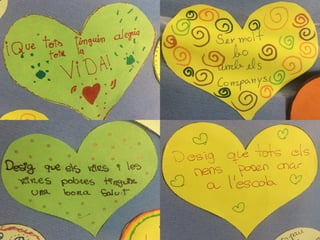 ¡Que tots tinguin alegria
tota la
VIDA!
Ser molt
bo
amb els
companys!
Desig que els nens i les
nines pobres tinguin
una bona salut
Desig que tots els
nens posen anar
a l'escola
pau